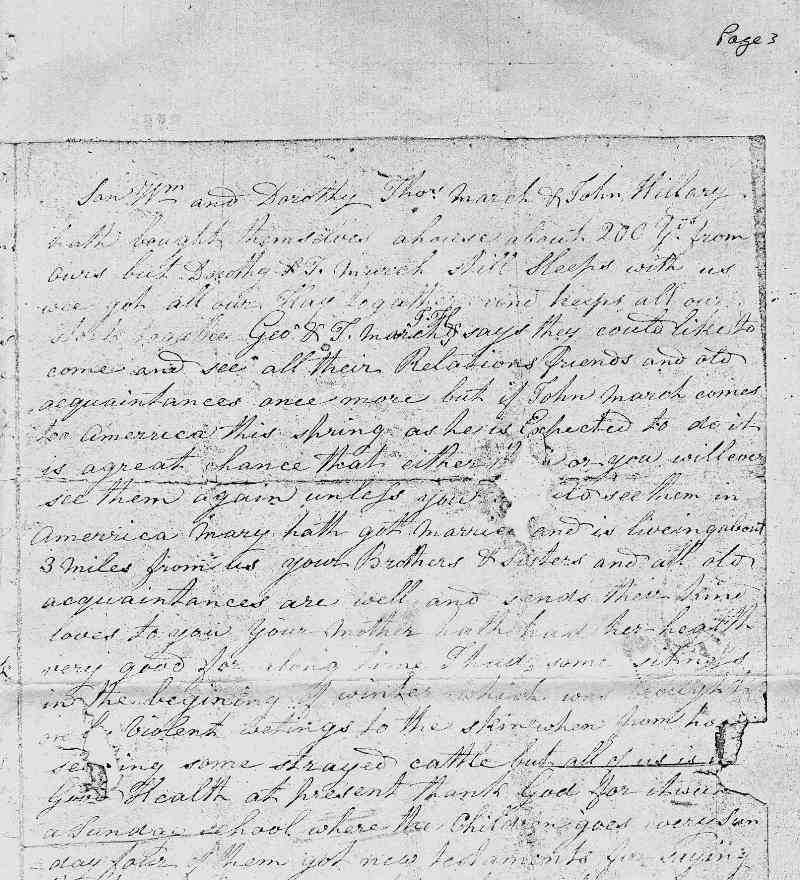 Page 3
Son Wm and Dorothy Thos March & John Hillary
hath bought themselves a house about 200 Yds from
ours but Dorothy & T. March still Sleeps with us
wee got all our Hay together and keeps all our
stock together Geo & T. March says they could like to
come and see all their Relations friends and old
acquaintances once more but if John March comes
too Amerrica this spring as he is Expected to do it
is a great chance that either or you will ever
see them again unless you to see them in
Amerrica Mary hath got married and is liveing about
3 Miles from us your Brothers & Sisters and all old
acquaintances are well and sends their kind
loves to you Your Mother hath had her health
very good for along time I had some
in the begining of winter which was
on violent wetings to the skin when from home
seeking some strayed cattle but all of us is in
Good Health at present thank God for it
a Sunday school where the Children goes every Sun
day four of them got new testaments for saying